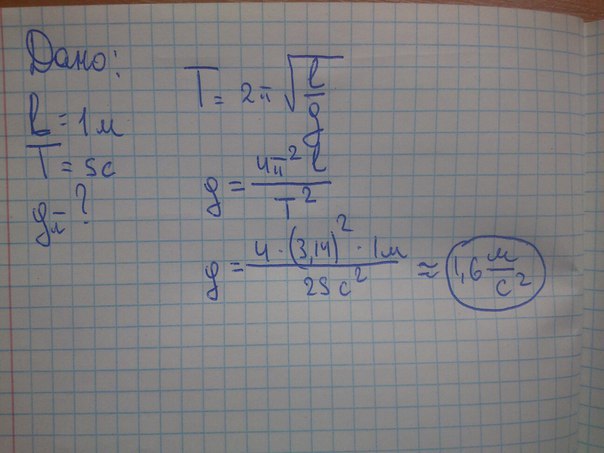 Дано:
l = 1м
T = 5с
gл - ?
T = 2π √(l/g)
g = 4π² l / T²
g = 4 · (3,14)² · 1м / 25 с² ≈ 1,6 м/с²